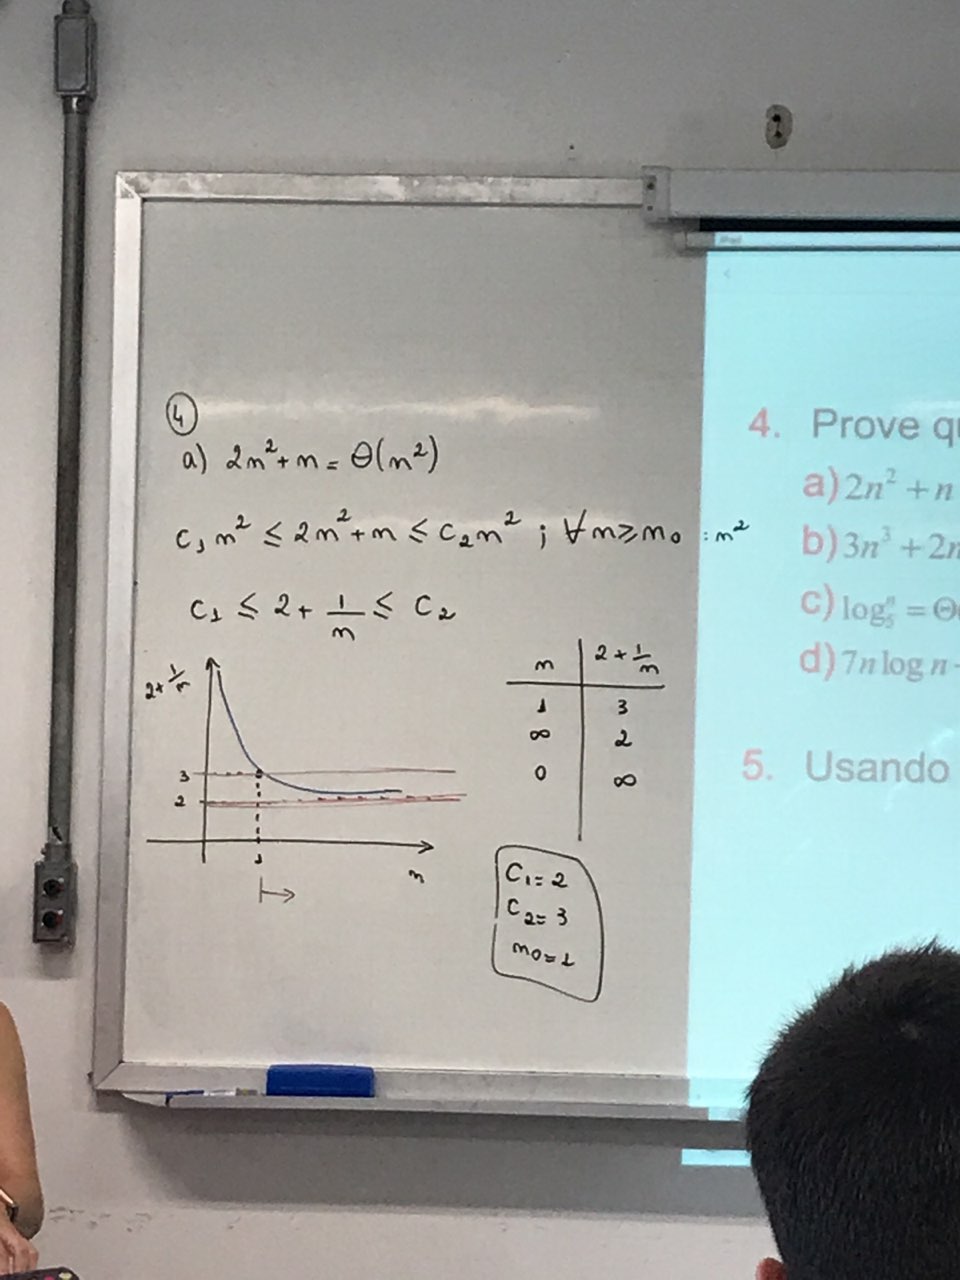 4
a) 2n²+n = Θ(n²)
C₁n² ≤ 2n²+n ≤ C₂n² ; ∀n≥n₀ :n²
C₁ ≤ 2+ 1/n ≤ C₂
2+ 1/n
3
2
1
n
n | 2+ 1/n
1 | 3
∞ | 2
0 | ∞
C₁=2
C₂=3
n₀=1
4. Prove
a) 2n² + n
b) 3n³ + 2n
c) log₅ⁿ = Θ
d) 7n log n
5. Usando